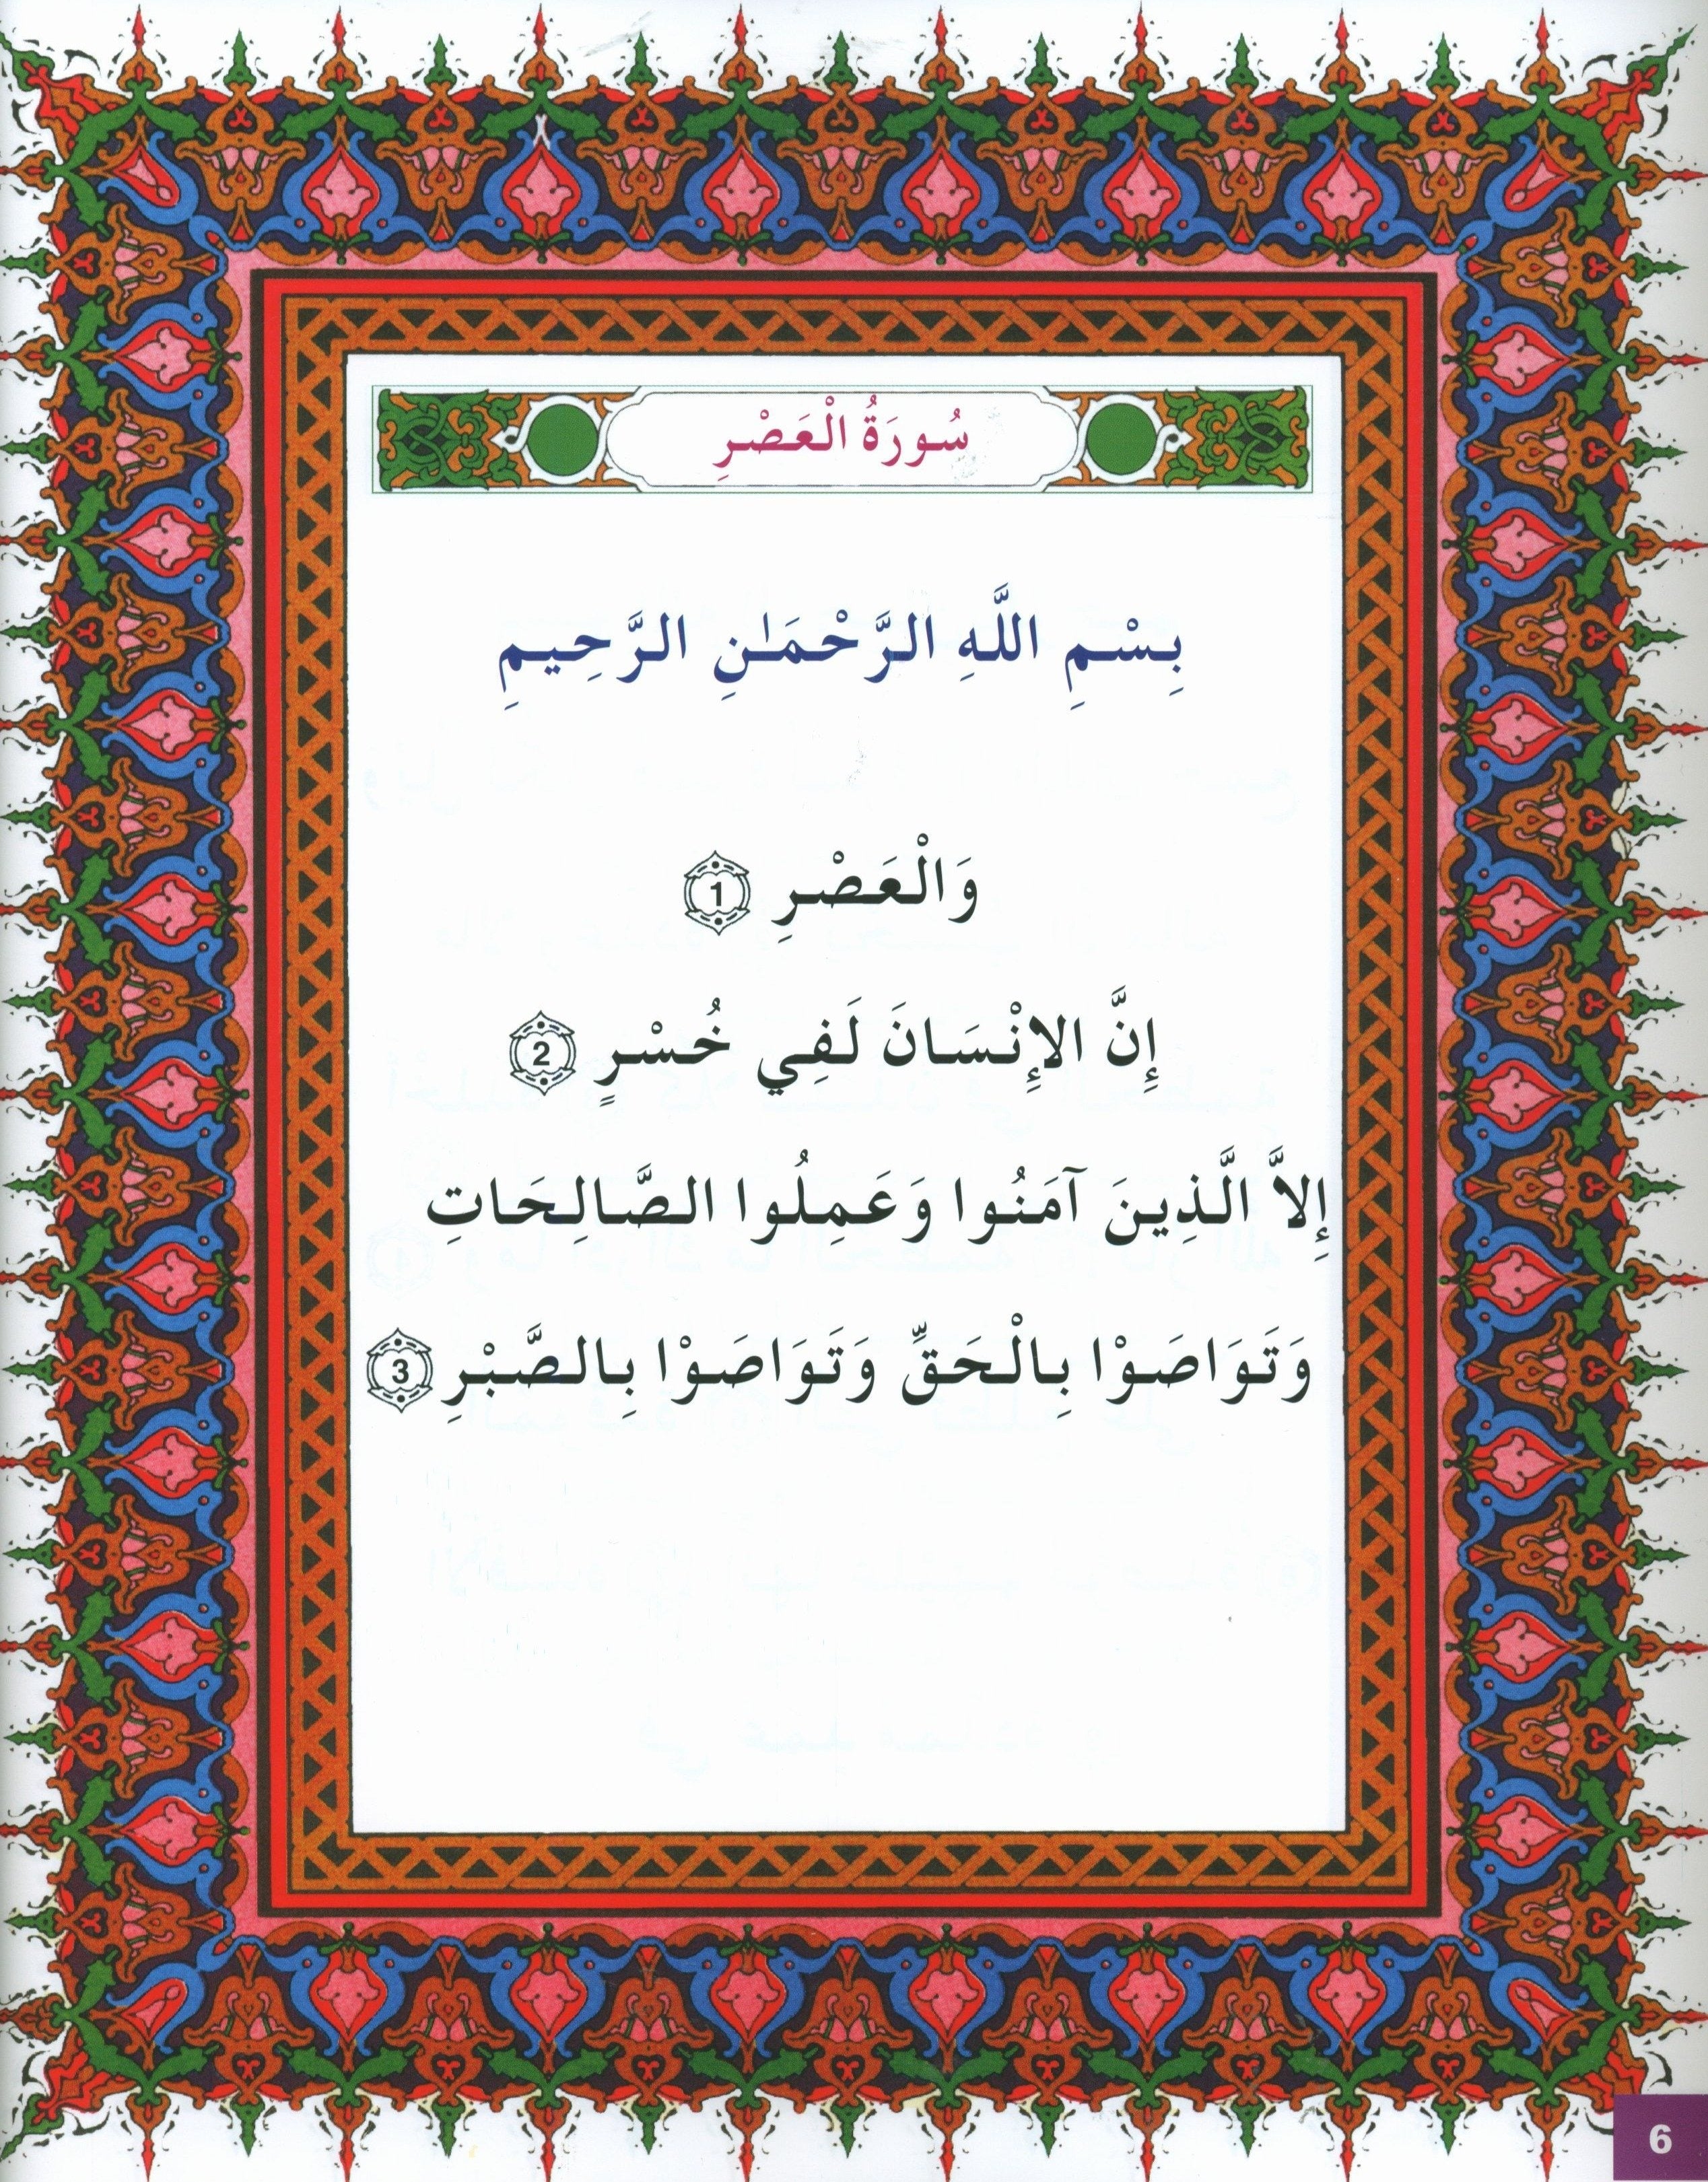 سُورَةُ الْعَصْرِ
بِسْمِ اللَّهِ الرَّحْمَٰنِ الرَّحِيمِ
وَالْعَصْرِ 1
إِنَّ الإِنْسَانَ لَفِي خُسْرٍ 2
إِلاَّ الَّذِينَ آمَنُوا وَعَمِلُوا الصَّالِحَاتِ
وَتَوَاصَوْا بِالْحَقِّ وَتَوَاصَوْا بِالصَّبْرِ 3
6